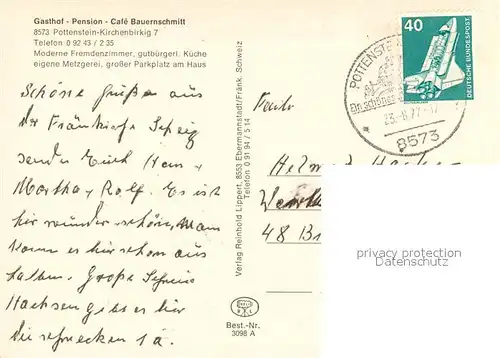 Gasthof - Pension - Café Bauernschmitt
8573 Pottenstein-Kirchenbirkig 7
Telefon 0 92 43 / 2 35
Moderne Fremdenzimmer, gutbürgerl. Küche
eigene Metzgerei, großer Parkplatz am Haus
Schöne Grüße aus
der Fränkische Schweiz
senden Euch Hans
Martha + Rolf. Es ist
hier wunderschön, Mam
kann es hier schon aus
halten. Große Schweins
Hachsen gibt es hier
die schmecken 1a.
Verlag Reinhold Lippert, 8553 Ebermannstadt/Fränk. Schweiz
Telefon 0 91 94 / 5 14
Best.-Nr.
3098 A
40
DEUTSCHE BUNDESPOST
POTTENSTEIN
Ein schönes
23.-8.77-17
8573
Familie
Helmut
48
privacy protection
Datenschutz